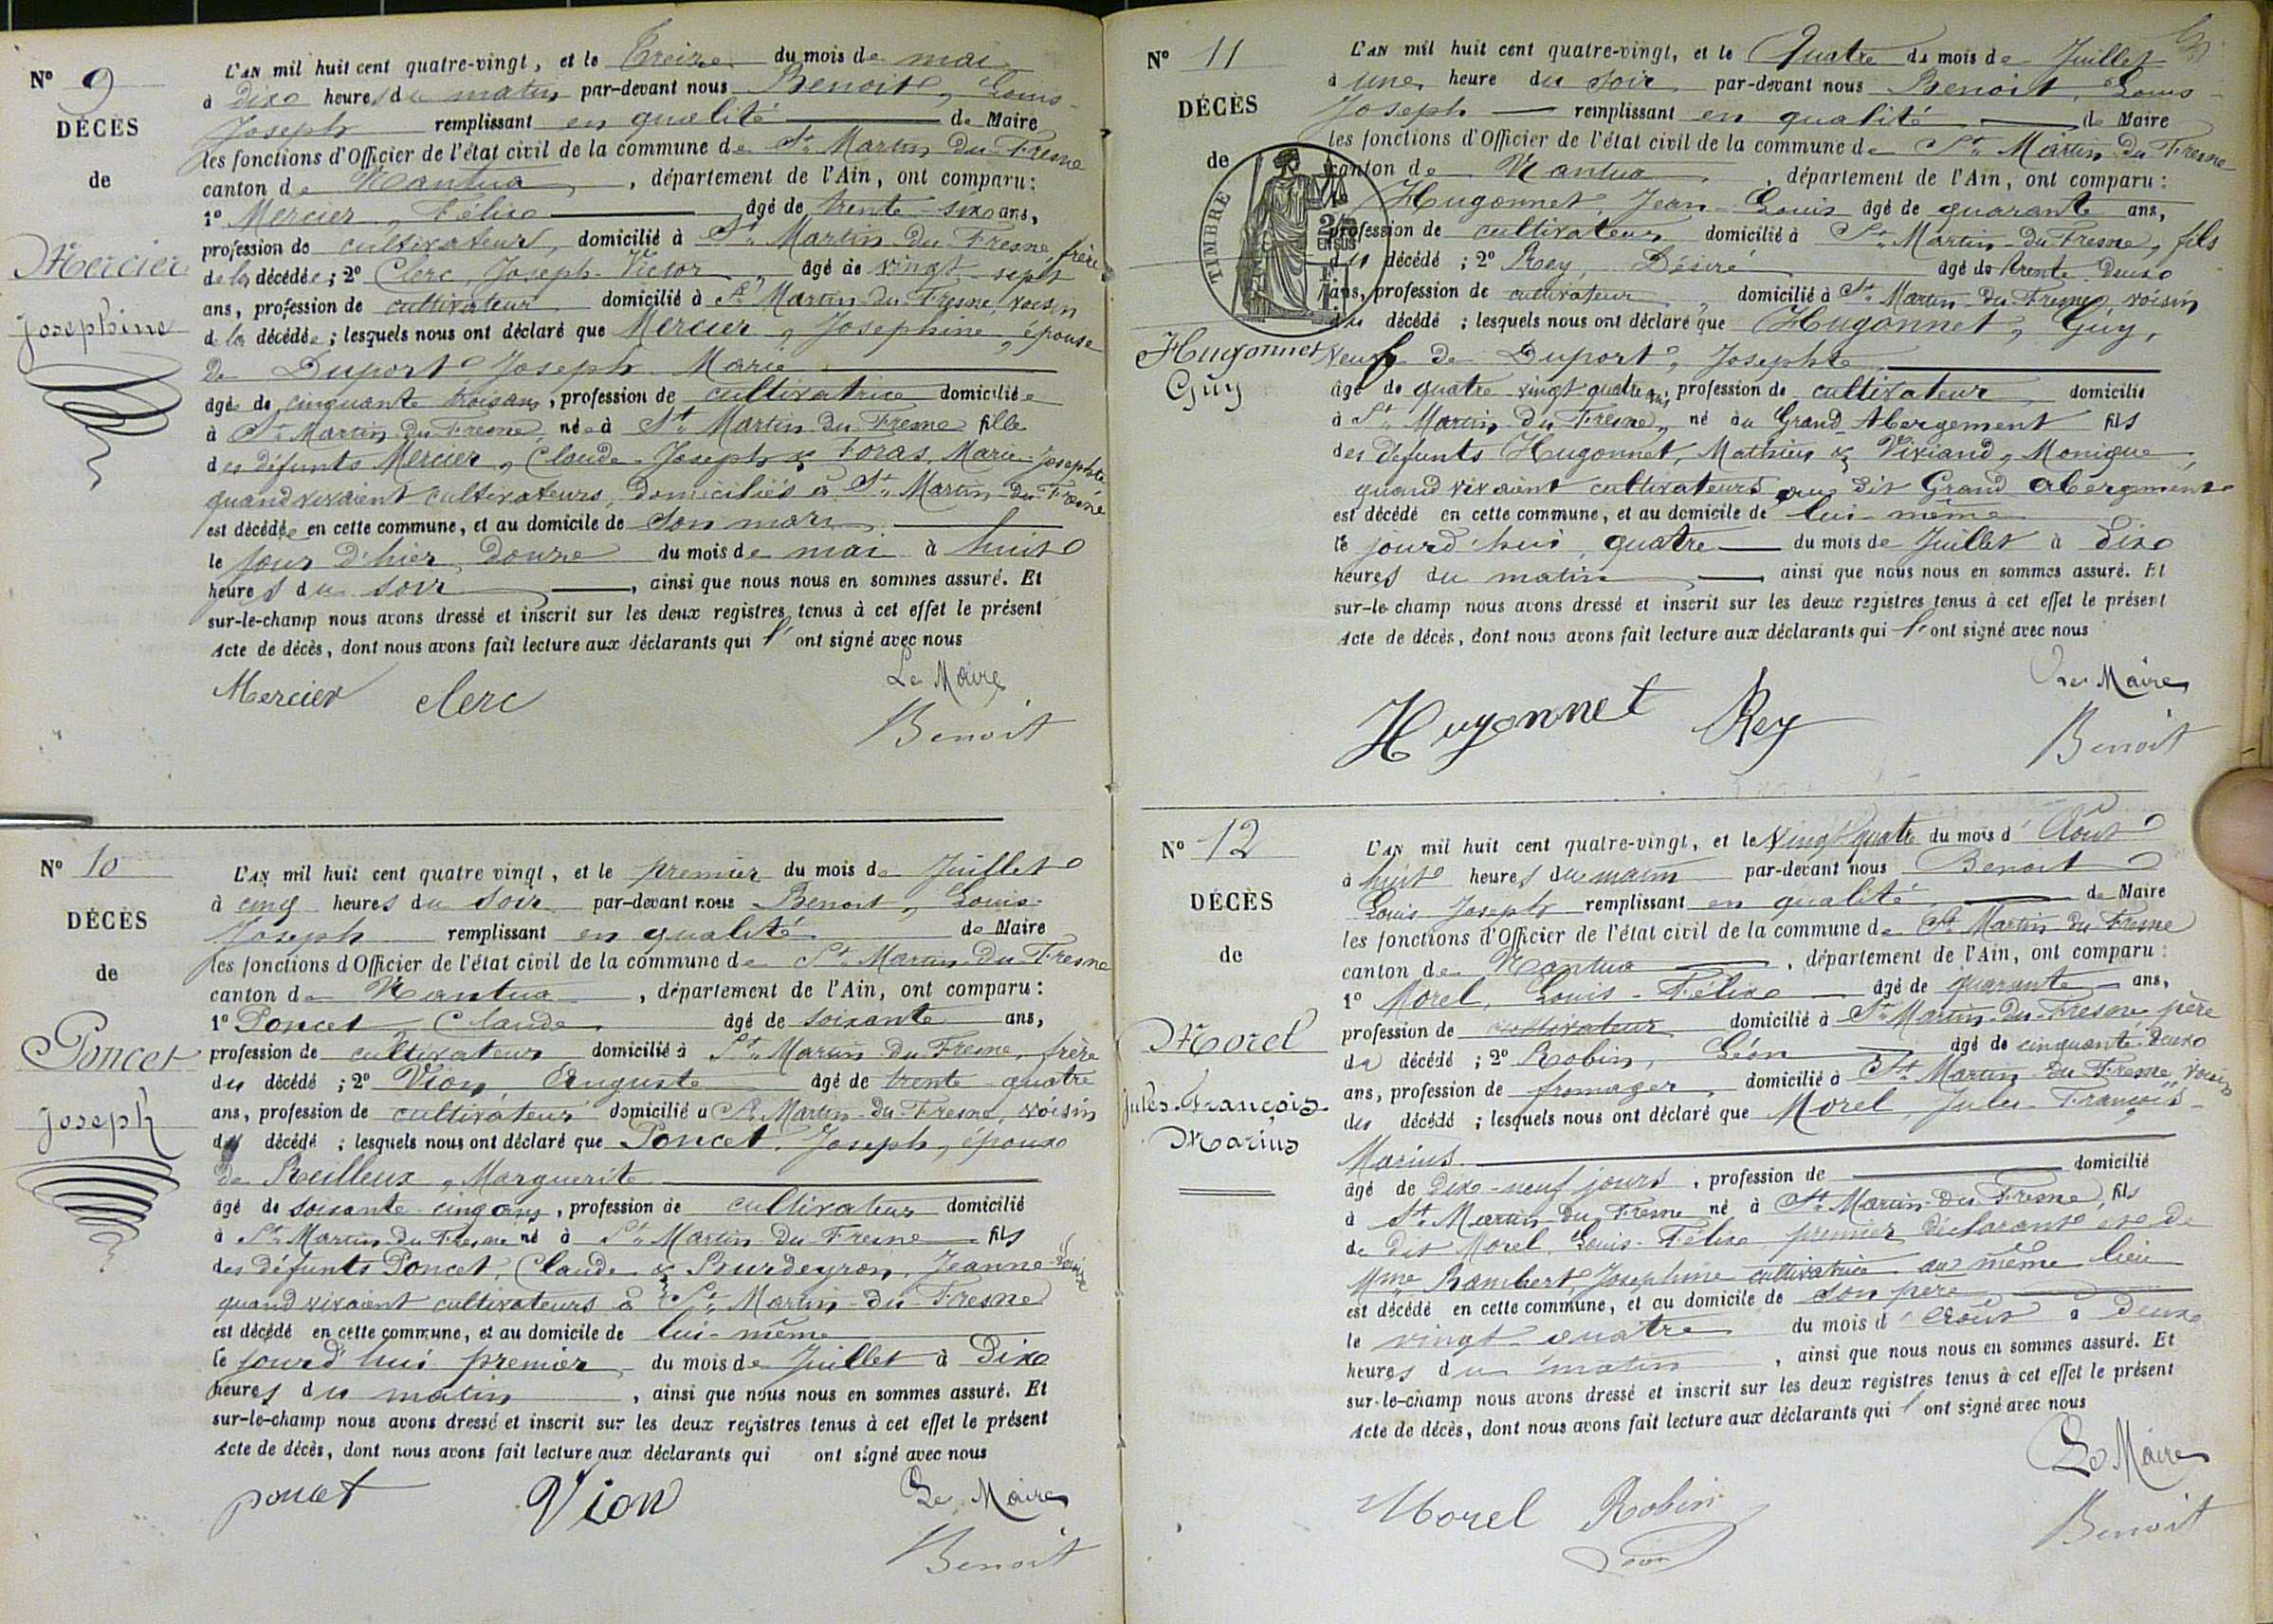 N° 9
DÉCÈS
de
Mercier
Josephine
L'AN mil huit cent quatre-vingt, et le Treize du mois de mai
à dix heures du matin par-devant nous Benoit, Louis-
Joseph remplissant en qualité de Maire
les fonctions d'Officier de l'état civil de la commune de St. Martin-du-Fresne
canton de Nantua, département de l'Ain, ont comparu :
1° Mercier, Félix âgé de trente-six ans,
profession de cultivateur, domicilié à St. Martin-du-Fresne, frère
de la décédée ; 2° Clerc, Joseph-Victor, âgé de vingt-sept
ans, profession de cultivateur domicilié à St. Martin-du-Fresne, voisin
de la décédée ; lesquels nous ont déclaré que Mercier, Josephine, épouse
de Duport Joseph-Marie
âgée de cinquante trois ans, profession de cultivatrice domiciliée
à St. Martin-du-Fresne, née à St. Martin-du-Fresne fille
des défunts Mercier, Claude-Joseph & Foras, Marie-Josephte
quand vivaient cultivateurs, domiciliés à St. Martin-du-Fresne
est décédée en cette commune, et au domicile de son mari
le jour d'hier, douze du mois de mai à huit
heures du soir, ainsi que nous nous en sommes assuré. Et
sur-le-champ nous avons dressé et inscrit sur les deux registres tenus à cet effet le présent
Acte de décès, dont nous avons fait lecture aux déclarants qui l'ont signé avec nous
Le Maire
Mercier clerc
Benoit
N° 10
DÉCÈS
de
Poncet
Joseph
L'AN mil huit cent quatre vingt, et le premier du mois de Juillet
à cinq heures du soir par-devant nous Benoit, Louis-
Joseph remplissant en qualité de Maire
les fonctions d'Officier de l'état civil de la commune de St. Martin-du-Fresne
canton de Nantua, département de l'Ain, ont comparu :
1° Poncet, Claude, âgé de soixante ans,
profession de cultivateur domicilié à St. Martin-du-Fresne, frère
du décédé ; 2° Vion, Auguste âgé de trente-quatre
ans, profession de cultivateur domicilié à St. Martin-du-Fresne, voisin
du décédé ; lesquels nous ont déclaré que Poncet, Joseph, époux
de Reilleux, Marguerite
âgé de soixante-cinq ans, profession de cultivateur domicilié
à St. Martin-du-Fresne né à St. Martin-du-Fresne fils
des défunts Poncet, Claude & Bourdeyron, Jeanne-Louise
quand vivaient cultivateurs à St. Martin-du-Fresne
est décédé en cette commune, et au domicile de lui-même
le jourd'hui premier du mois de Juillet à Dix
heures du matin, ainsi que nous nous en sommes assuré. Et
sur-le-champ nous avons dressé et inscrit sur les deux registres tenus à cet effet le présent
Acte de décès, dont nous avons fait lecture aux déclarants qui ont signé avec nous
poncet Vion Le Maire
Benoit
N° 11
DÉCÈS
de
TIMBRE
Hugonnet
Guy
L'AN mil huit cent quatre-vingt, et le Quatre du mois de Juillet
à une heure du soir par-devant nous Benoit, Louis-
Joseph remplissant en qualité de Maire
les fonctions d'Officier de l'état civil de la commune de St. Martin-du-Fresne
canton de Nantua, département de l'Ain, ont comparu :
Hugonnet, Jean-Louis âgé de quarante ans,
profession de cultivateur domicilié à St. Martin-du-Fresne, fils
du décédé ; 2° Rey, Désiré âgé de trente-deux
ans, profession de cultivateur, domicilié à St. Martin-du-Fresne, voisin
du décédé ; lesquels nous ont déclaré que Hugonnet, Guy,
veuf de Duport, Josephte
âgé de quatre-vingt-quatre ans, profession de cultivateur domicilié
à St. Martin-du-Fresne, né au Grand-Abergement fils
des défunts Hugonnet, Mathieu & Viviand, Monique,
quand vivaient cultivateurs au dit Grand-Abergement
est décédé en cette commune, et au domicile de lui-même
le jourd'hui, quatre du mois de Juillet à Dix
heures du matin, ainsi que nous nous en sommes assuré. Et
sur-le-champ nous avons dressé et inscrit sur les deux registres tenus à cet effet le présent
Acte de décès, dont nous avons fait lecture aux déclarants qui l'ont signé avec nous
Le Maire
Hugonnet Rey
Benoit
N° 12
DÉCÈS
de
Morel
Jules-François-
Marius
L'AN mil huit cent quatre-vingt, et le Vingt-quatre du mois d'Août
à huit heures du matin par-devant nous Benoit
Louis-Joseph remplissant en qualité de Maire
les fonctions d'Officier de l'état civil de la commune de St. Martin-du-Fresne
canton de Nantua, département de l'Ain, ont comparu :
1° Morel, Louis-Félix âgé de quarante ans,
profession de cultivateur domicilié à St. Martin-du-Fresne, père
du décédé ; 2° Robin, Léon âgé de cinquante-deux
ans, profession de fromager, domicilié à St. Martin-du-Fresne, voisin
du décédé ; lesquels nous ont déclaré que Morel, Jules-François-
Marius
âgé de dix-neuf jours, profession de domicilié
à St. Martin-du-Fresne né à St. Martin-du-Fresne, fils
de dit Morel, Louis-Félix premier déclarant et de
Mme Rambert, Josephine cultivatrice au même lieu
est décédé en cette commune, et au domicile de son père
le vingt-quatre du mois d'Août à Deux
heures du matin, ainsi que nous nous en sommes assuré. Et
sur-le-champ nous avons dressé et inscrit sur les deux registres tenus à cet effet le présent
Acte de décès, dont nous avons fait lecture aux déclarants qui l'ont signé avec nous
Le Maire
Morel Robin
Benoit